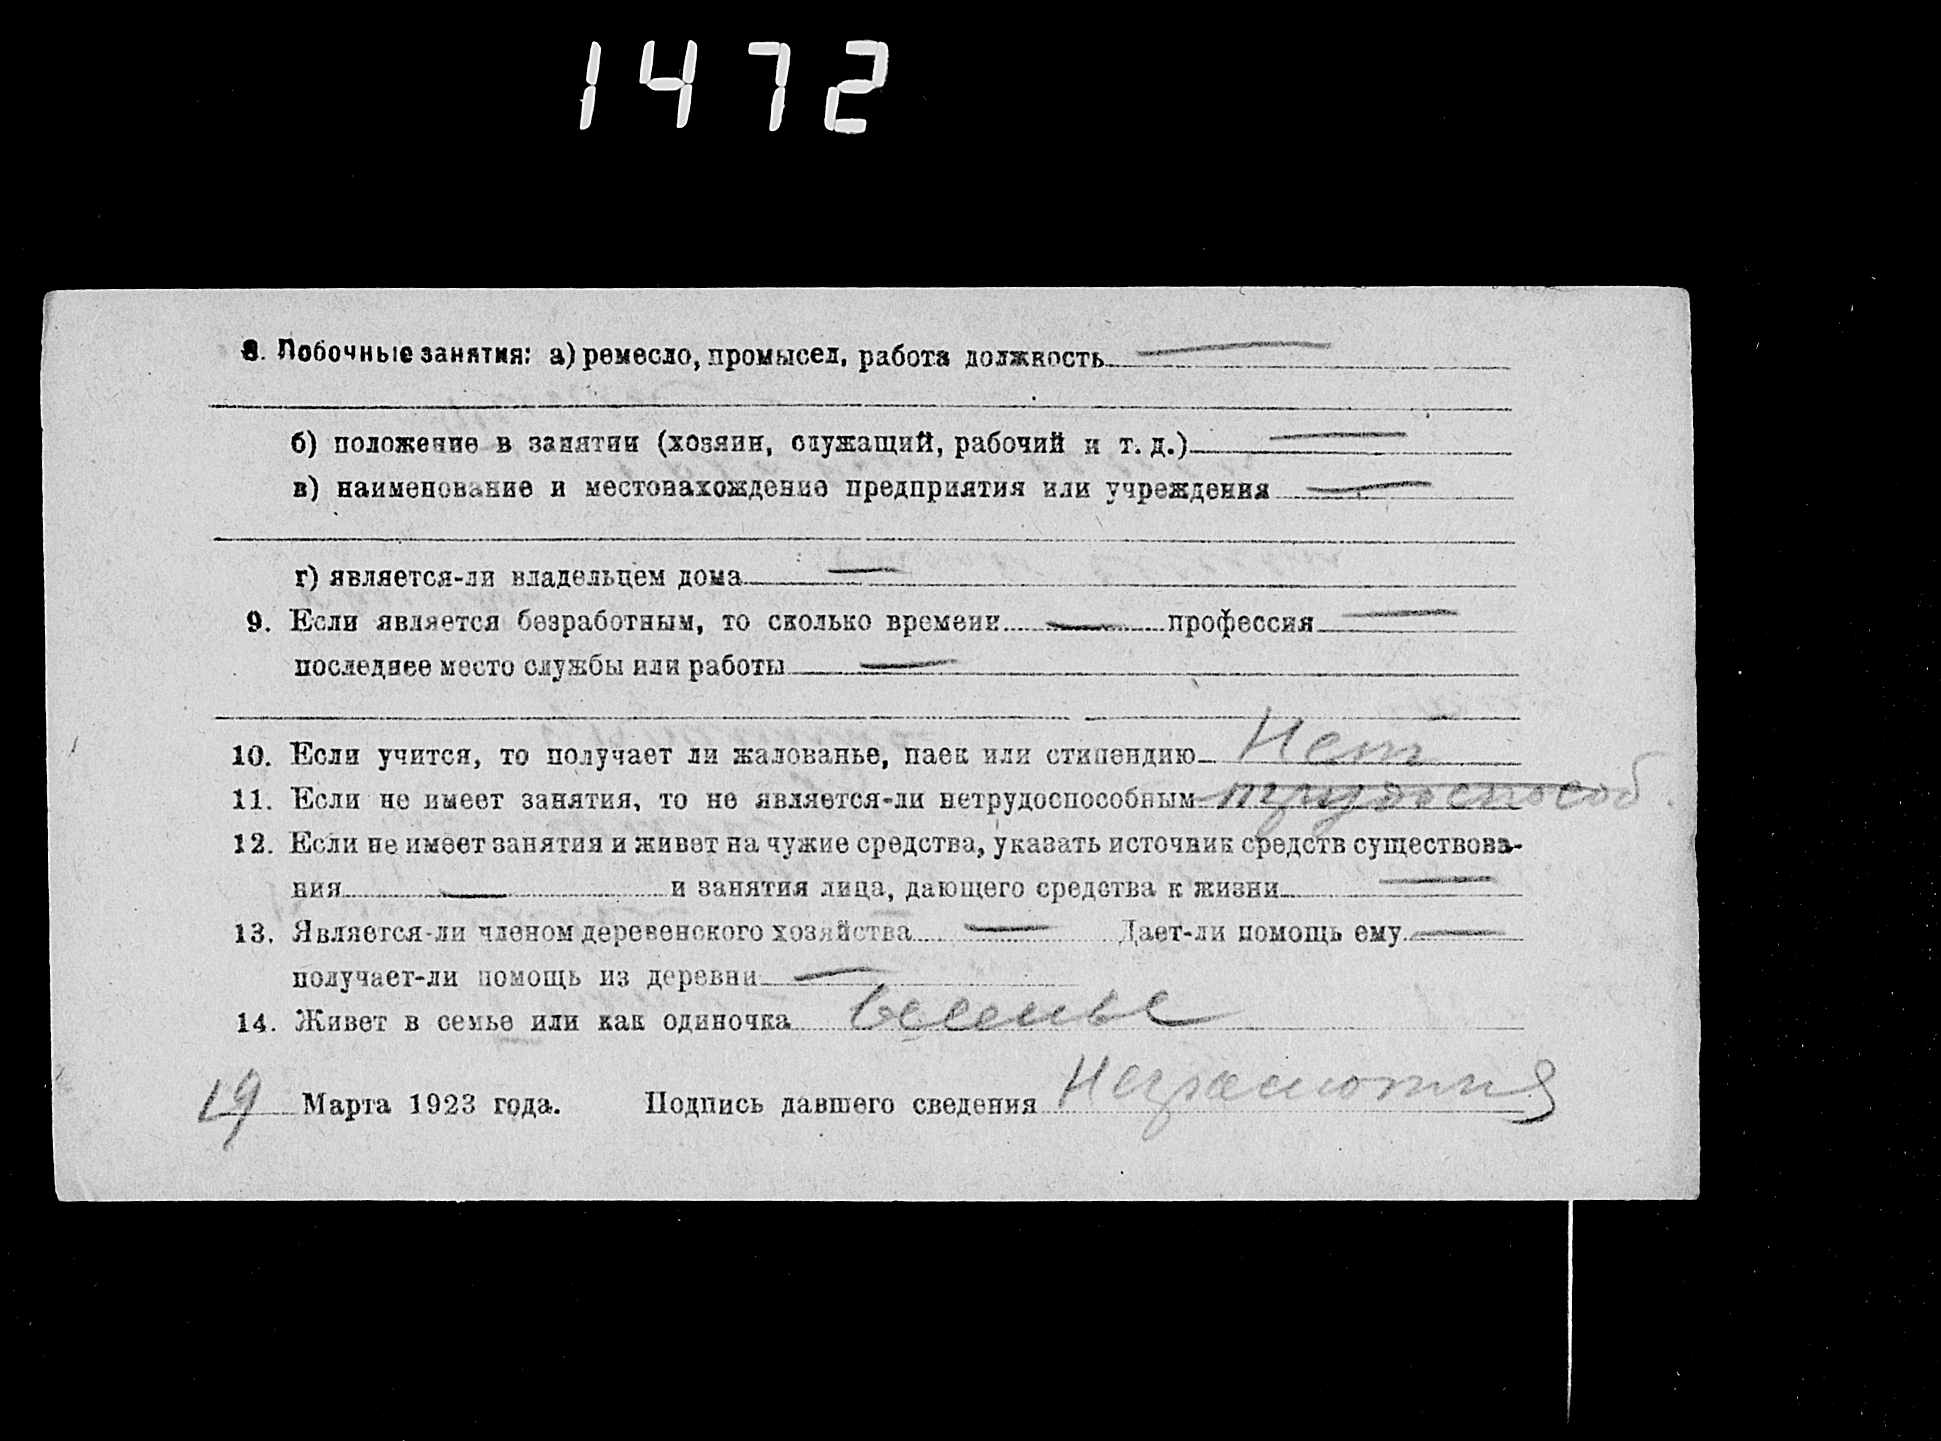 1472
8. Побочные занятия: а) ремесло, промысел, работа должность —
б) положение в занятии (хозяин, служащий, рабочий и т. д.) —
в) наименование и местонахождение предприятия или учреждения —
г) является-ли владельцем дома —
9. Если является безработным, то сколько времени — профессия —
последнее место службы или работы —
10. Если учится, то получает ли жалованье, паек или стипендию Нет
11. Если не имеет занятия, то не является-ли нетрудоспособным трудоспособ.
12. Если не имеет занятия и живет на чужие средства, указать источник средств существова-
ния — и занятия лица, дающего средства к жизни —
13. Является-ли членом деревенского хозяйства — Дает-ли помощь ему —
получает-ли помощь из деревни —
14. Живет в семье или как одиночка в семье
19 Марта 1923 года. Подпись давшего сведения Неграмотная